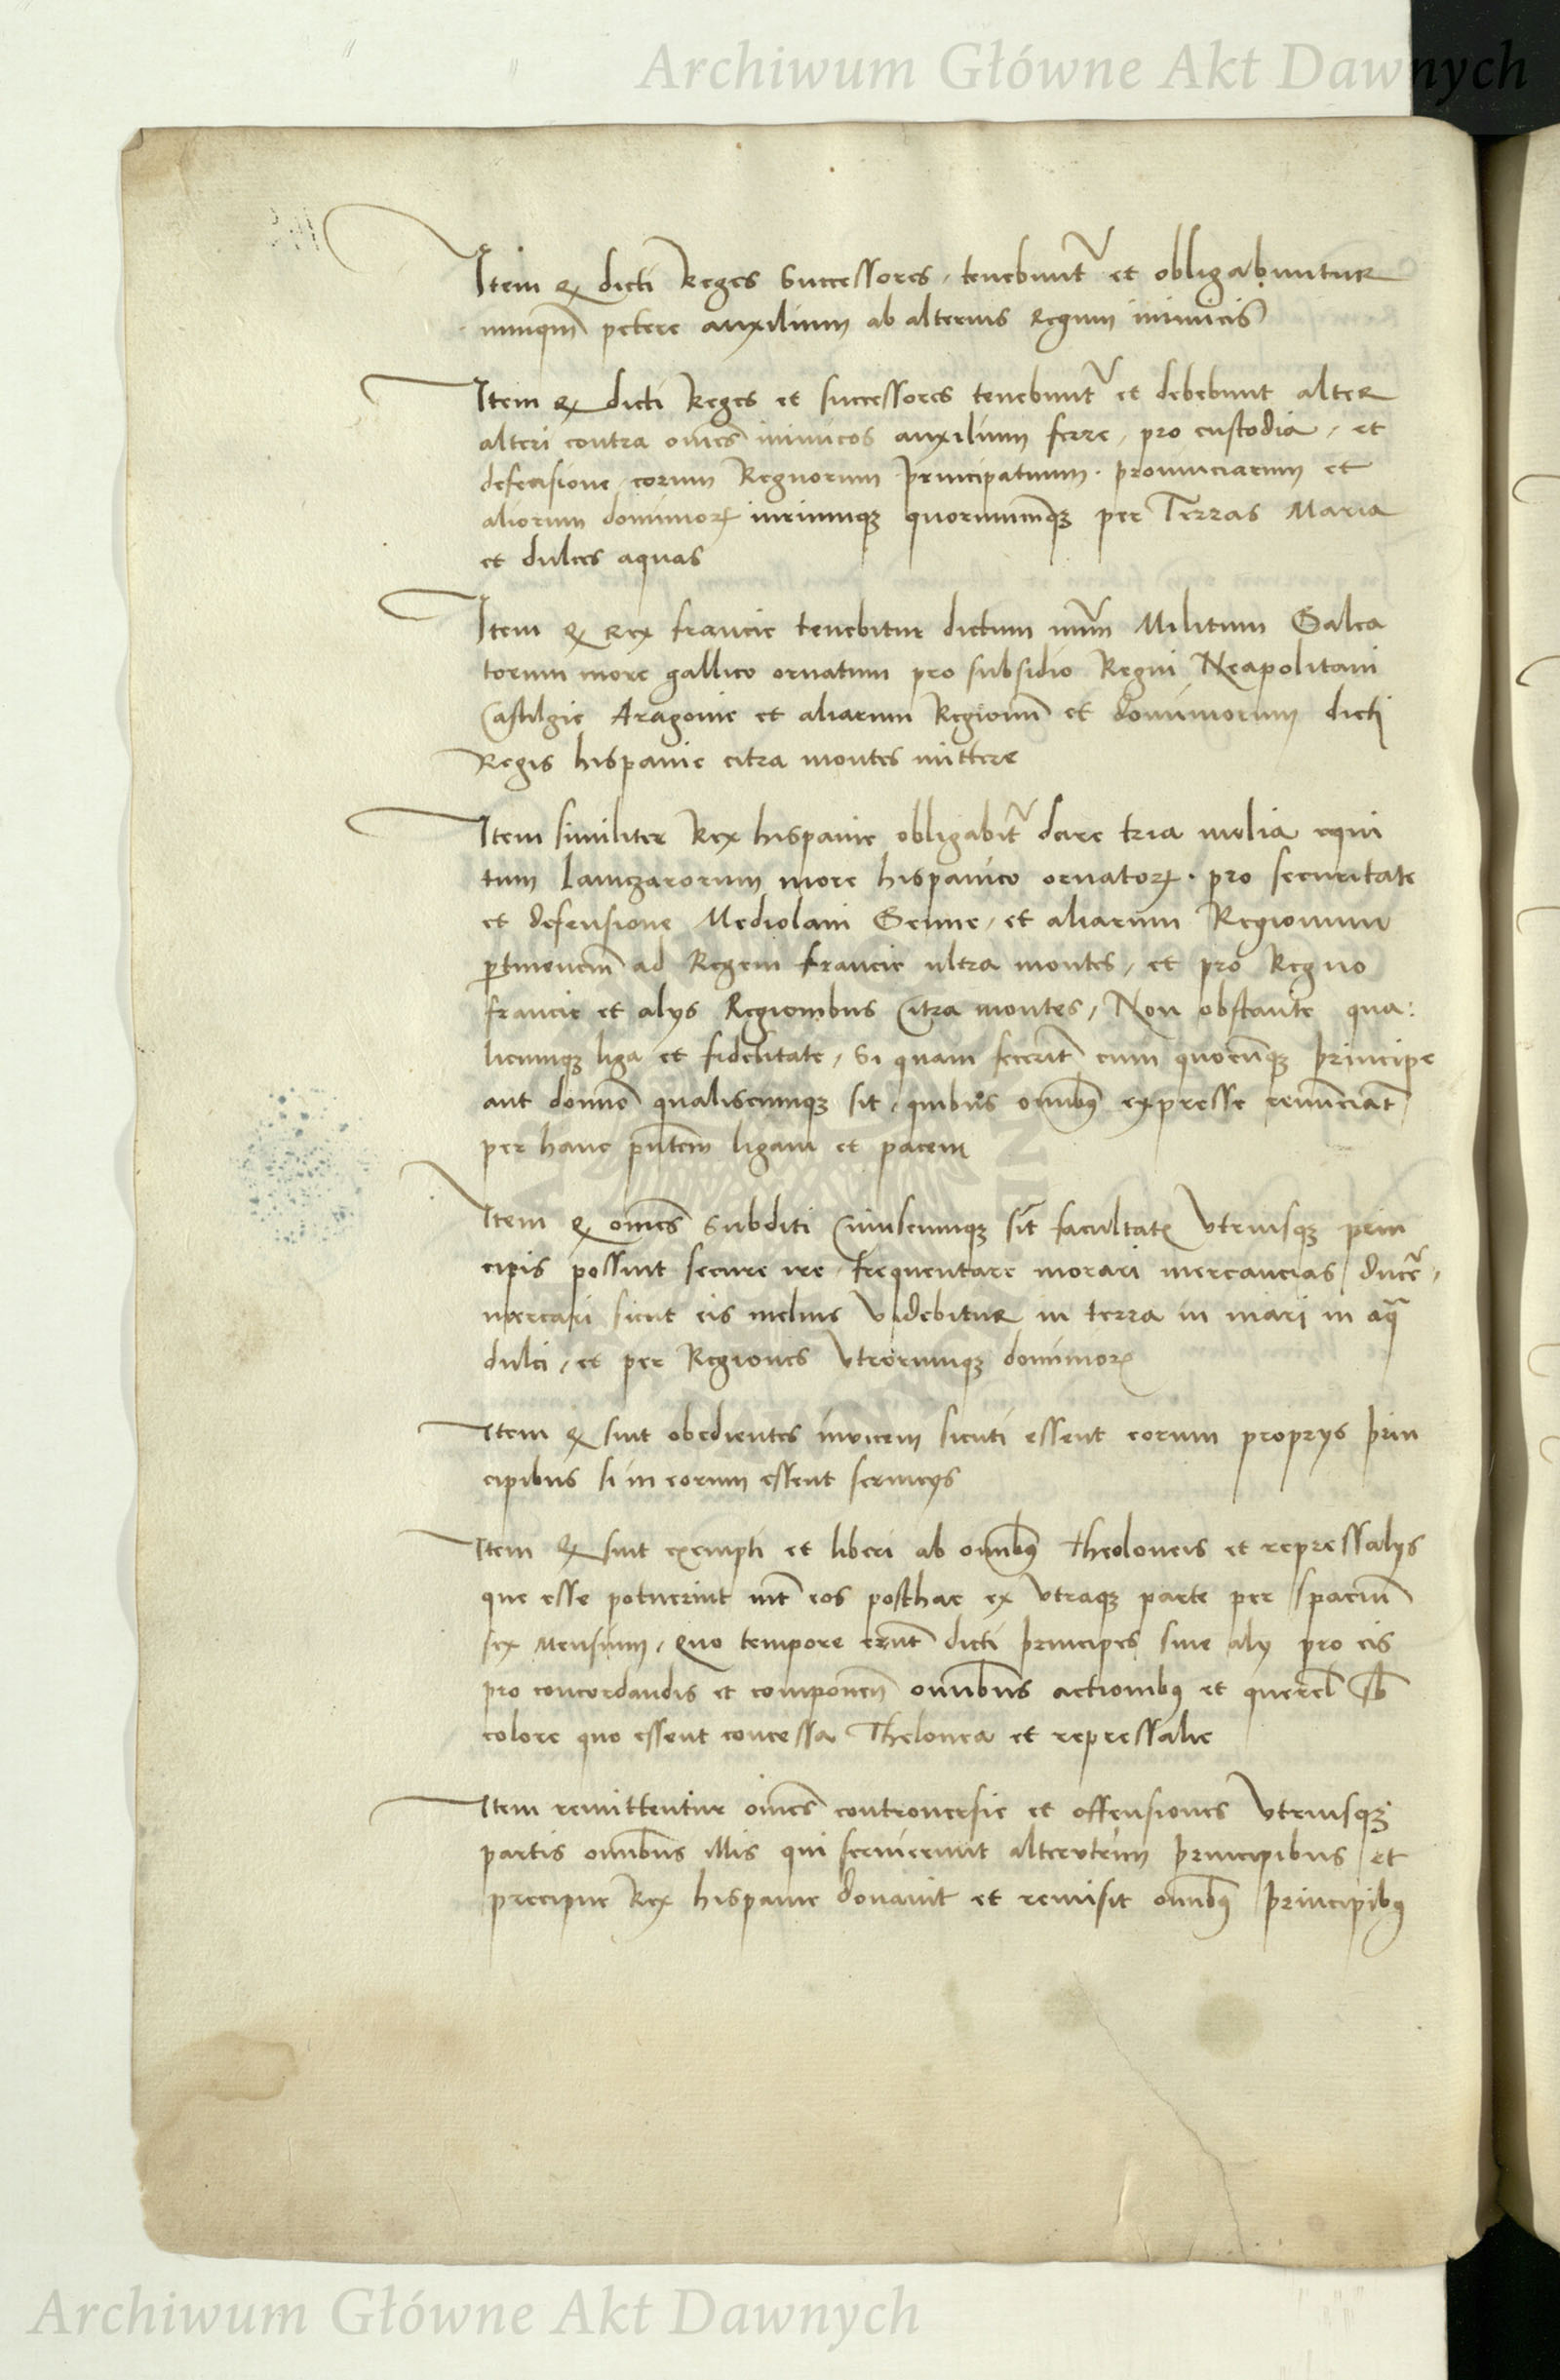 Archiwum Główne Akt Dawnych
Item ꝙ dicti Reges Successores, tenebunt̃ et obligabuntur
nunqm̃ petere auxilium ab alterius Regum inimicis
Item ꝙ dicti Reges et successores tenebunt̃ et debebunt alter
alteri contra om̃es inimicos auxilium ferre, pro custodia, et
defensione, eorum Regnorum principatuum. prouinciarum et
aliorum dominorꝝ iuriumqꝫ quorumcũqꝫ per Terras Maria
et dulces aquas
Item ꝙ Rex francie tenebitur dictum num̃ Militum Galea
torum more gallico ornatum pro subsidio Regni Neapolitani
Castilgie Aragonie et aliarum Regionũ et dominiorum dicti
Regis hispanie citra montes mittere
Item similiter Rex hispanie obligabit̃ dare tria milia equi
tum lanczarorum more hispanico ornatorꝝ. pro securitate
et defensione Mediolani Genue, et aliarum Regionum
ꝑtinencm̃ ad Regem francie ultra montes, et pro Regno
francie et alys Regionibus Citra montes, Non obstante qua:
licumqꝫ liga et fidelitate, Si quam fecerit cum quocũqꝫ principe
aut domno qualiscumqꝫ sit, quibus omnibꝰ expresse renunciant
per hanc pñtem ligam et pacem
Item ꝙ om̃es Subditi Cuiuscumqꝫ sint facultatꝭ Vtriusqꝫ prin
cipis possint secure ire, frequentare morari mercancias ducer̃,
mercari sicut eis melius videbitur in terra in mari in aq̃
dulci, et per Regiones Vtrorumqꝫ dominorꝝ
Item ꝙ sint obedientes inuicem sicuti essent eorum proprys prin
cipibus si in eorum essent seruicys
Item ꝙ sint exempti et liberi ab omnibꝰ theoloneis et repressalys
que esse potuerint int̃ eos posthac ex Vtraqꝫ parte per spaciũ
sex Mensium, Quo tempore erũt dicti principes siue aly pro eis
pro concordandis et componen̄ omnibus actionibꝰ et querel̃ sb̃
colore quo essent concessa Thelonea et repressalie
Item remittentur om̃es controuersie et offensiones Vtriusqꝫ
partis omnibus illis qui seruierunt alterutrum principibus et
precipue Rex hispanie donauit et remisit omnibꝰ principibꝰ
Archiwum Główne Akt Dawnych